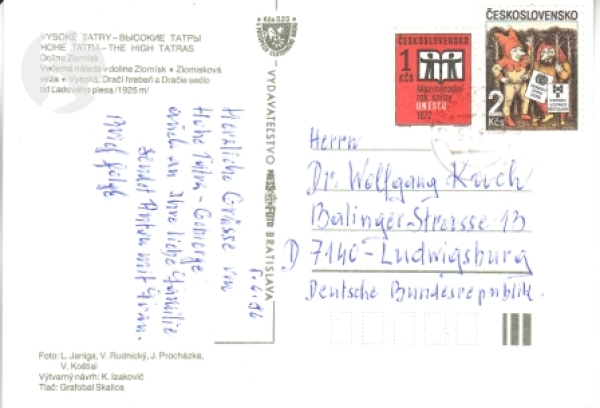 VYSOKÉ TATRY–ВЫСОКИЕ ТАТРЫ
HOHE TATRA–THE HIGH TATRAS
Dolina Zlomisk
Večerná nálada v doline Zlomisk • Zlomisková
veža • Vysoká, Dračí hrebeň a Dračie sedlo
od Ľadového plesa /1925 m/
Herzliche Grüsse von
Hohe Tatra - Gebirge
auch an Ihre liebe Familie
sendet Anton mit Frau.
6.2.86
VYDAVATEĽSTVO
BRATISLAVA
Kčs 0,20
ČESKOSLOVENSKO
1 Kčs
Mezinárodní
rok knihy
UNESCO
1972
ČESKOSLOVENSKO
2 Kčs
Herrn
Dr. Wolfgang Kuch
Balinger Strasse 13
D 7140 - Ludwigsburg
Deutsche Bundesrepublik.
Foto: L. Janiga, V. Rudnický, J. Procházka,
V. Koštial
Výtvarný návrh: K. Izakovič
Tlač: Grafobal Skalica